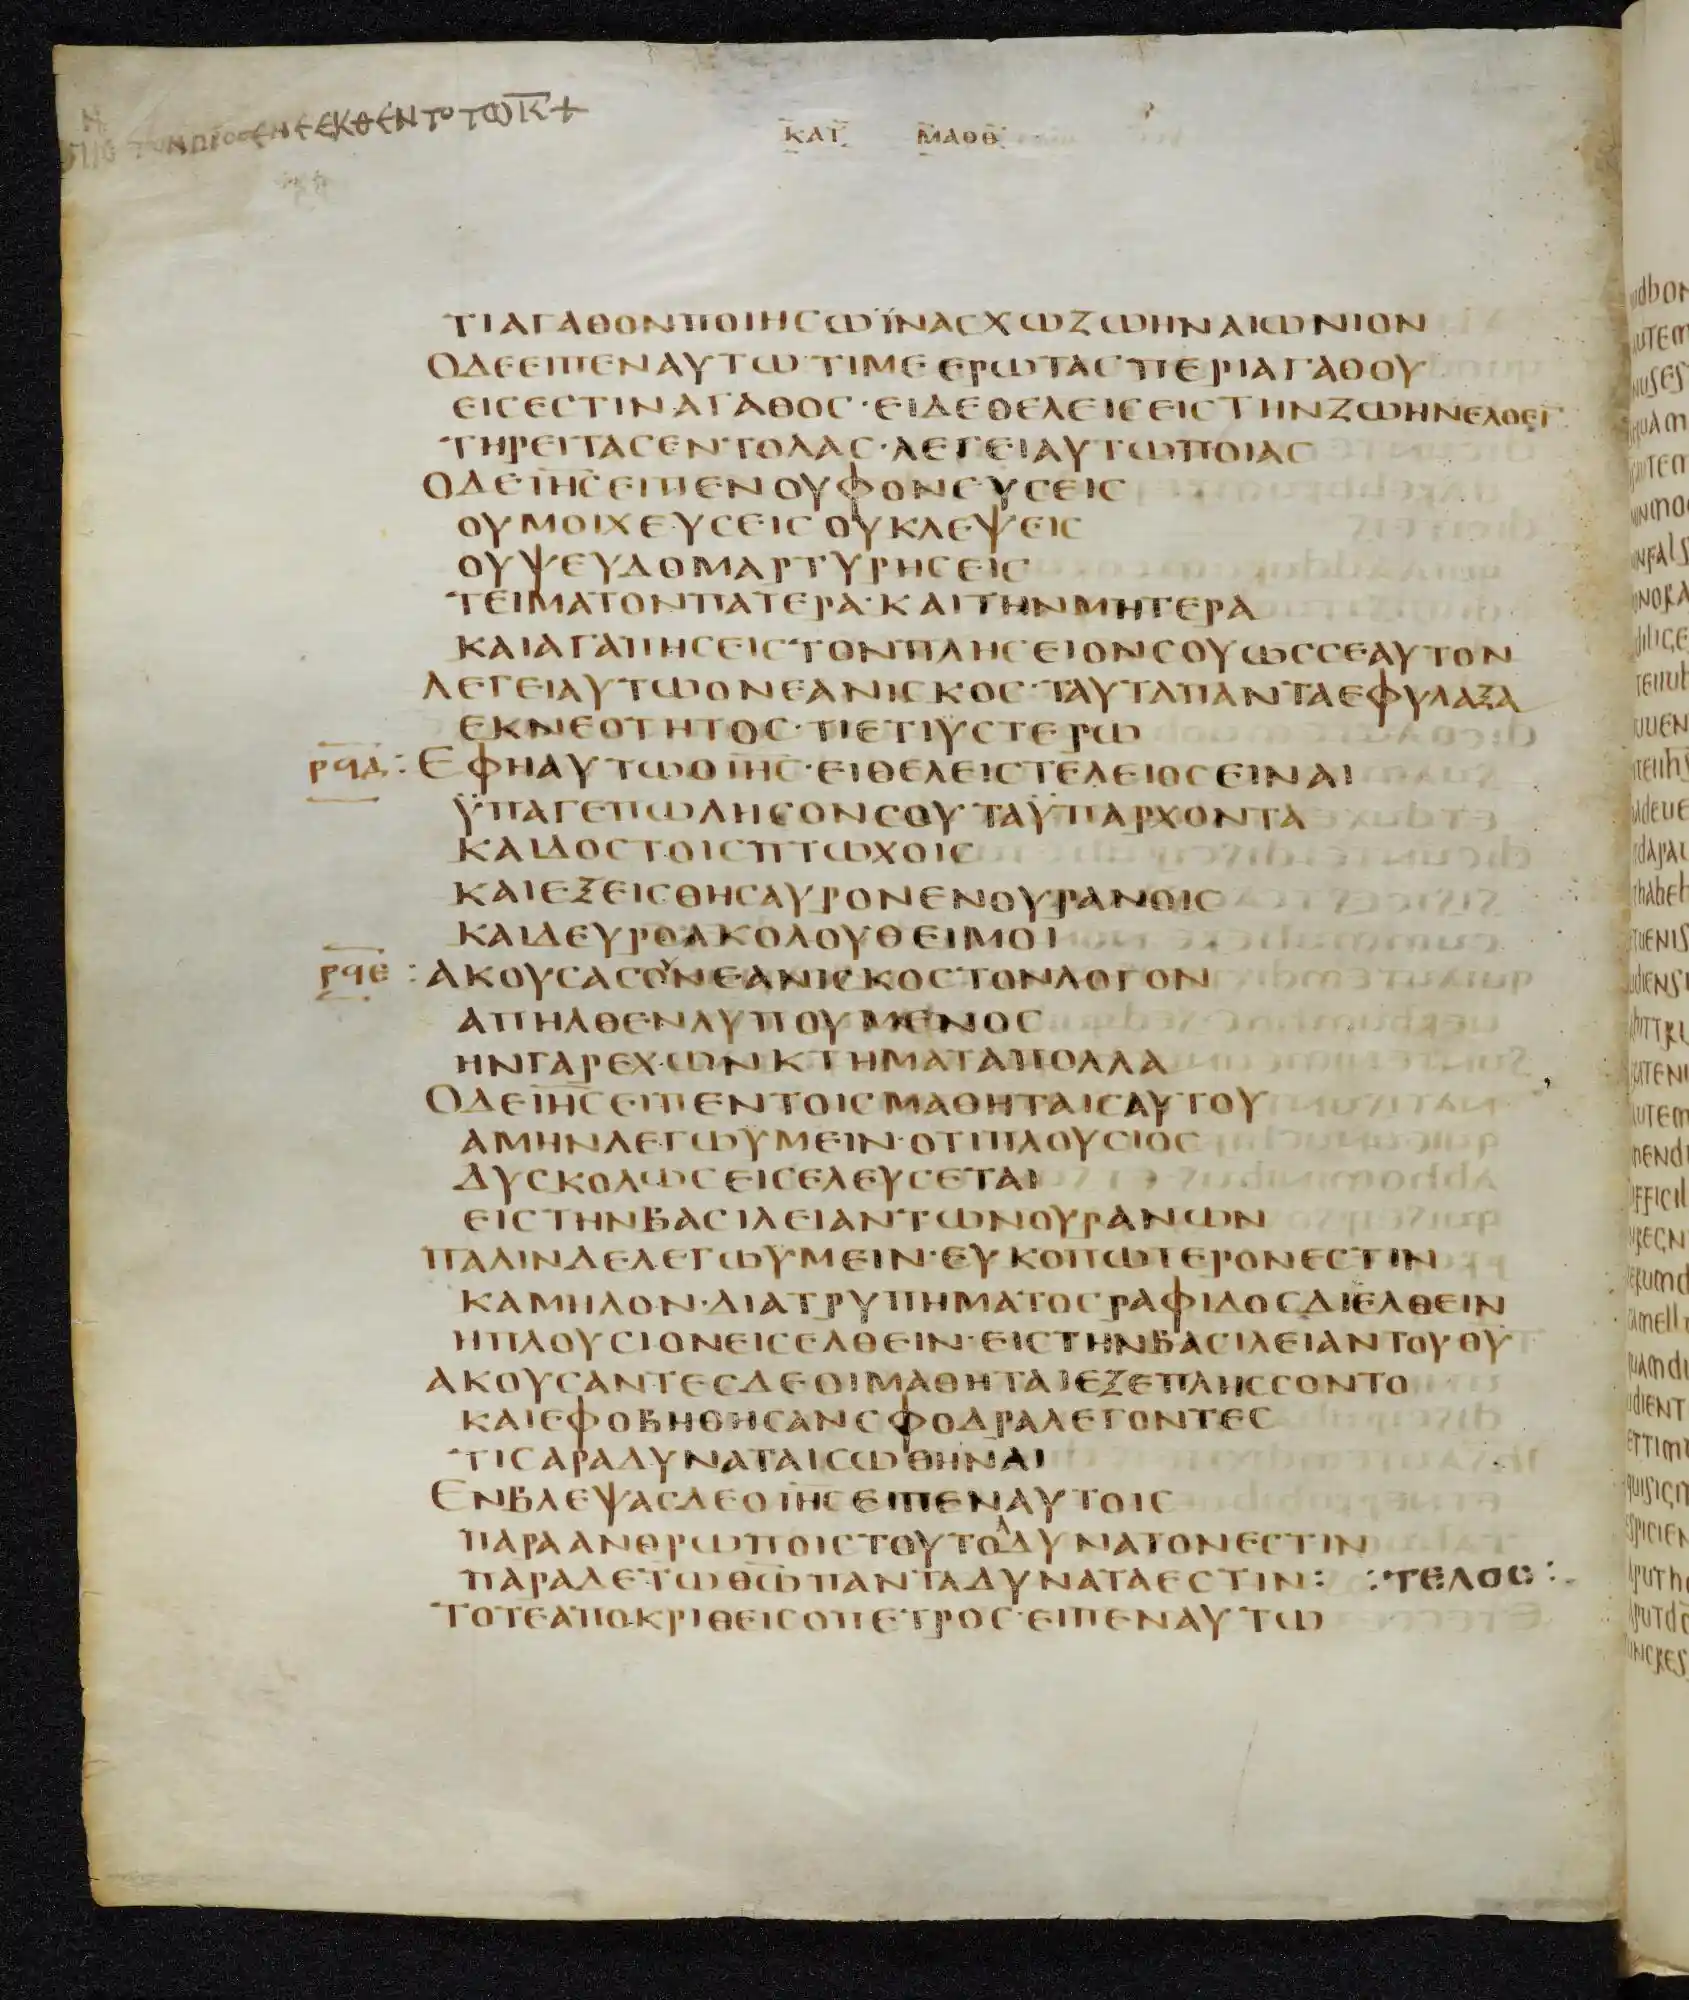 ΠΡΟΣΕΝΕΕΚΘΕΝΤΟΤΩΚ̅+
ΚΑΤ ΜΑΘΘ
ΤΙΑΓΑΘΟΝΠΟΙΗΣΩΪΝΑΣΧΩΖΩΗΝΑΙΩΝΙΟΝ
ΟΔΕΕΙΠΕΝΑΥΤΩ·ΤΙΜΕΕΡΩΤΑΣΠΕΡΙΑΓΑΘΟΥ
ΕΙΣΕΣΤΙΝΑΓΑΘΟΣ·ΕΙΔΕΘΕΛΕΙΣΕΙΣΤΗΝΖΩΗΝΕΛΘΕΙ
ΤΗΡΕΙΤΑΣΕΝΤΟΛΑΣ·ΛΕΓΕΙΑΥΤΩΠΟΙΑΣ
ΟΔΕΙ̅Η̅Σ̅ΕΙΠΕΝΟΥΦΟΝΕΥΣΕΙΣ
ΟΥΜΟΙΧΕΥΣΕΙΣΟΥΚΛΕΨΕΙΣ
ΟΥΨΕΥΔΟΜΑΡΤΥΡΗΣΕΙΣ
ΤΕΙΜΑΤΟΝΠΑΤΕΡΑ·ΚΑΙΤΗΝΜΗΤΕΡΑ
ΚΑΙΑΓΑΠΗΣΕΙΣΤΟΝΠΛΗΣΕΙΟΝΣΟΥΩΣΣΕΑΥΤΟΝ
ΛΕΓΕΙΑΥΤΩΟΝΕΑΝΙΣΚΟΣ·ΤΑΥΤΑΠΑΝΤΑΕΦΥΛΑΞΑ
ΕΚΝΕΟΤΗΤΟΣ·ΤΙΕΤΙΫΣΤΕΡΩ
ΡϤΔ : ΕΦΗΑΥΤΩΟΙ̅Η̅Σ̅·ΕΙΘΕΛΕΙΣΤΕΛΕΙΟΣΕΙΝΑΙ
ΫΠΑΓΕΠΩΛΗΣΟΝΣΟΥΤΑΫΠΑΡΧΟΝΤΑ
ΚΑΙΔΟΣΤΟΙΣΠΤΩΧΟΙΣ
ΚΑΙΕΞΕΙΣΘΗΣΑΥΡΟΝΕΝΟΥΡΑΝΟΙΣ
ΚΑΙΔΕΥΡΟΑΚΟΛΟΥΘΕΙΜΟΙ
ΡϤΕ : ΑΚΟΥΣΑΣΟΥΝΕΑΝΙΣΚΟΣΤΟΝΛΟΓΟΝ
ΑΠΗΛΘΕΝΛΥΠΟΥΜΕΝΟΣ
ΗΝΓΑΡΕΧΩΝΚΤΗΜΑΤΑΠΟΛΛΑ
ΟΔΕΙ̅Η̅Σ̅ΕΙΠΕΝΤΟΙΣΜΑΘΗΤΑΙΣΑΥΤΟΥ
ΑΜΗΝΛΕΓΩΥΜΕΙΝ·ΟΤΙΠΛΟΥΣΙΟΣ
ΔΥΣΚΟΛΩΣΕΙΣΕΛΕΥΣΕΤΑΙ
ΕΙΣΤΗΝΒΑΣΙΛΕΙΑΝΤΩΝΟΥΡΑΝΩΝ
ΠΑΛΙΝΔΕΛΕΓΩΥΜΕΙΝ·ΕΥΚΟΠΩΤΕΡΟΝΕΣΤΙΝ
ΚΑΜΗΛΟΝ·ΔΙΑΤΡΥΠΗΜΑΤΟΣΡΑΦΙΔΟΣΔΙΕΛΘΕΙΝ
ΗΠΛΟΥΣΙΟΝΕΙΣΕΛΘΕΙΝ·ΕΙΣΤΗΝΒΑΣΙΛΕΙΑΝΤΟΥΘ̅Υ̅
ΑΚΟΥΣΑΝΤΕΣΔΕΟΙΜΑΘΗΤΑΙΕΞΕΠΛΗΣΣΟΝΤΟ
ΚΑΙΕΦΟΒΗΘΗΣΑΝΣΦΟΔΡΑΛΕΓΟΝΤΕΣ
ΤΙΣΑΡΑΔΥΝΑΤΑΙΣΩΘΗΝΑΙ
ΕΝΒΛΕΨΑΣΔΕΟΙ̅Η̅Σ̅ΕΙΠΕΝΑΥΤΟΙΣ
ΠΑΡΑΑΝΘΡΩΠΟΙΣΤΟΥΤΟΑΔΥΝΑΤΟΝΕΣΤΙΝ
ΠΑΡΑΔΕΤΩΘ̅Ω̅ΠΑΝΤΑΔΥΝΑΤΑΕΣΤΙΝ: :ΤΕΛΟΣ:
ΤΟΤΕΑΠΟΚΡΙΘΕΙΣΟΠΕΤΡΟΣ·ΕΙΠΕΝΑΥΤΩ